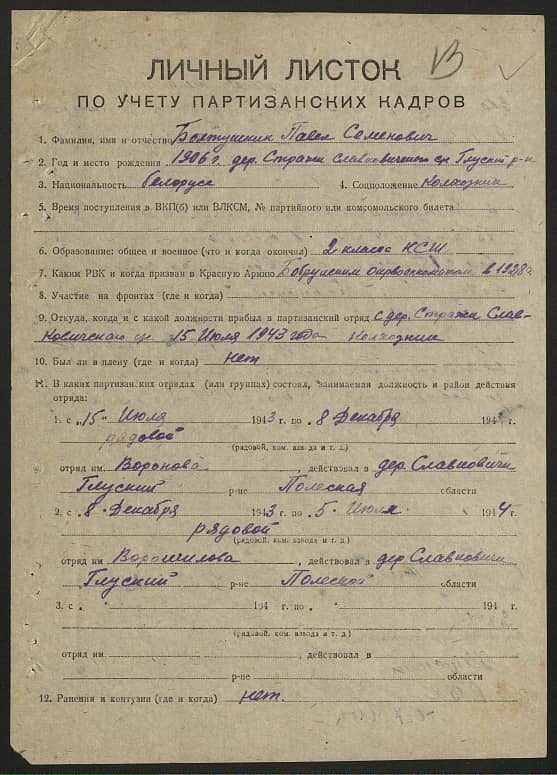 В
ЛИЧНЫЙ ЛИСТОК
ПО УЧЕТУ ПАРТИЗАНСКИХ КАДРОВ
1. Фамилия, имя и отчество Болтушкин Павел Семенович
2. Год и место рождения 1906 г. дер. Стражи Славковичского с/с Глуский р-н
3. Национальность белорус 4. Соцположение Колхозник
5. Время поступления в ВКП(б) или ВЛКСМ, № партийного или комсомольского билета
6. Образование: общее и военное (что и когда окончил) 2 класса НСШ
7. Каким РВК и когда призван в Красную Армию Бобруйским окрвоенкоматом в 1928 г
8. Участие на фронтах (где и когда)
9. Откуда, когда и с какой должности прибыл в партизанский отряд с дер. Стражи Слав-
ковичского с/с 15 Июля 1943 года Колхозник
10. Был ли в плену (где и когда) нет
11. В каких партизанских отрядах (или группах) состоял, занимаемая должность и район действия
отряда:
1. с „15" Июля 1943 г. по 8 Декабря 194 г.
рядовой
(рядовой, ком. взвода и т. д.)
отряд им. Воронова, действовал в дер. Славковичи
Глуский р-не Полесская области
2. с 8 Декабря 1943 г. по 5 Июля 1944 г.
рядовой
(рядовой, ком. взвода и т. д.)
отряд им Ворошилова, действовал дер Славковичи
Глуский р-не Полеской области
3. с 194 г. по 194 г.
(рядовой, ком. взвода и т. д)
отряд им., действовал в
р-не области
12. Ранения и контузии (где и когда) нет.